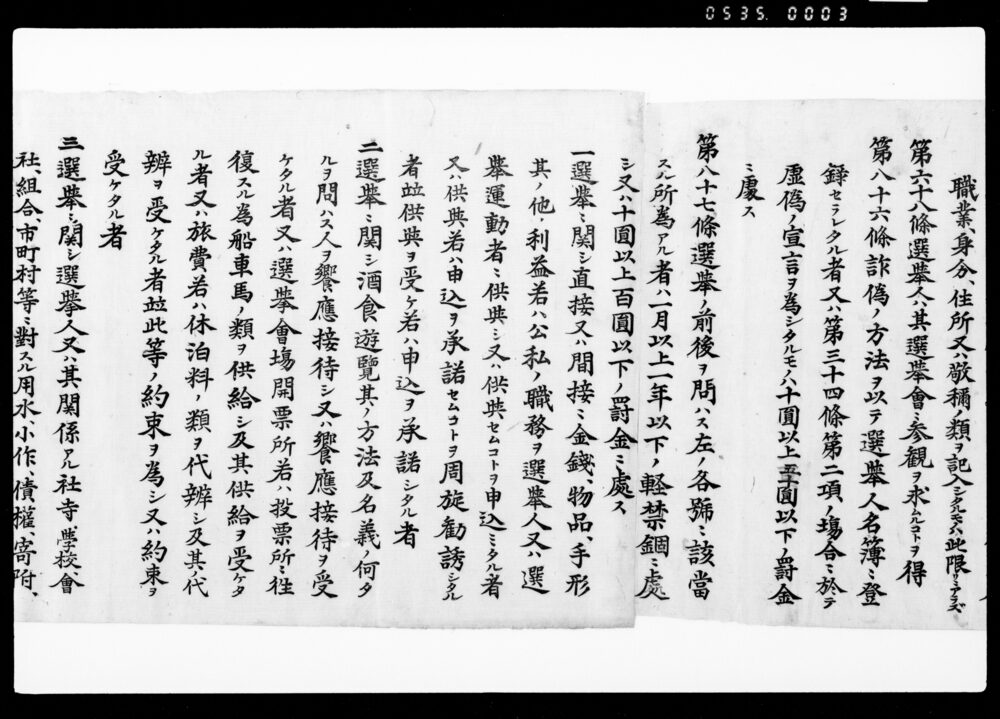 0535. 0003
職業、身分、住所又ハ敬稱ノ類ヲ記入シタルモノハ此限リニアラズ
第六十八條選擧人ハ其選擧會ニ参観ヲ求ムルコトヲ得
第八十六條詐僞ノ方法ヲ以テ選擧人名簿ニ登
録セラレタル者又ハ第三十四條第二項ノ塲合ニ於テ
虚僞ノ宣言ヲ為シタルモノハ十圓以上五十圓以下ノ罰金
ニ處ス
第八十七條選擧ノ前後ヲ問ハス左ノ各號ニ該當
スル所為アル者ハ一月以上一年以下ノ軽禁錮ニ處
シ又ハ十圓以上百圓以下ノ罰金ニ處ス
一選擧ニ関シ直接又ハ間接ニ金錢、物品、手形
其ノ他ノ利益若ハ公私ノ職務ヲ選擧人又ハ選
擧運動者ニ供與シ又ハ供與セムコトヲ申込ミタル者
又ハ供與若ハ申込ヲ承諾セムコトヲ周旋勧誘シタル
者竝供與ヲ受ケ若ハ申込ヲ承諾シタル者
二選擧ニ関シ酒食遊覽其ノ方法及名義ノ何タ
ルヲ問ハス人ヲ饗應接待シ又ハ饗應接待ヲ受
ケタル者又ハ選擧會塲開票所若ハ投票所ニ徃
復スル為船車馬ノ類ヲ供給シ及其ノ供給ヲ受ケタ
ル者又ハ旅費若ハ休泊料ノ類ヲ代辨シ及其ノ代
辨ヲ受ケタル者竝此等ノ約束ヲ為シ又ハ約束ヲ
受ケタル者
三選擧ニ関シ選擧人又ハ其関係アル社寺、學校、會
社、組合、市町村等ニ對スル用水、小作、債權、寄附、